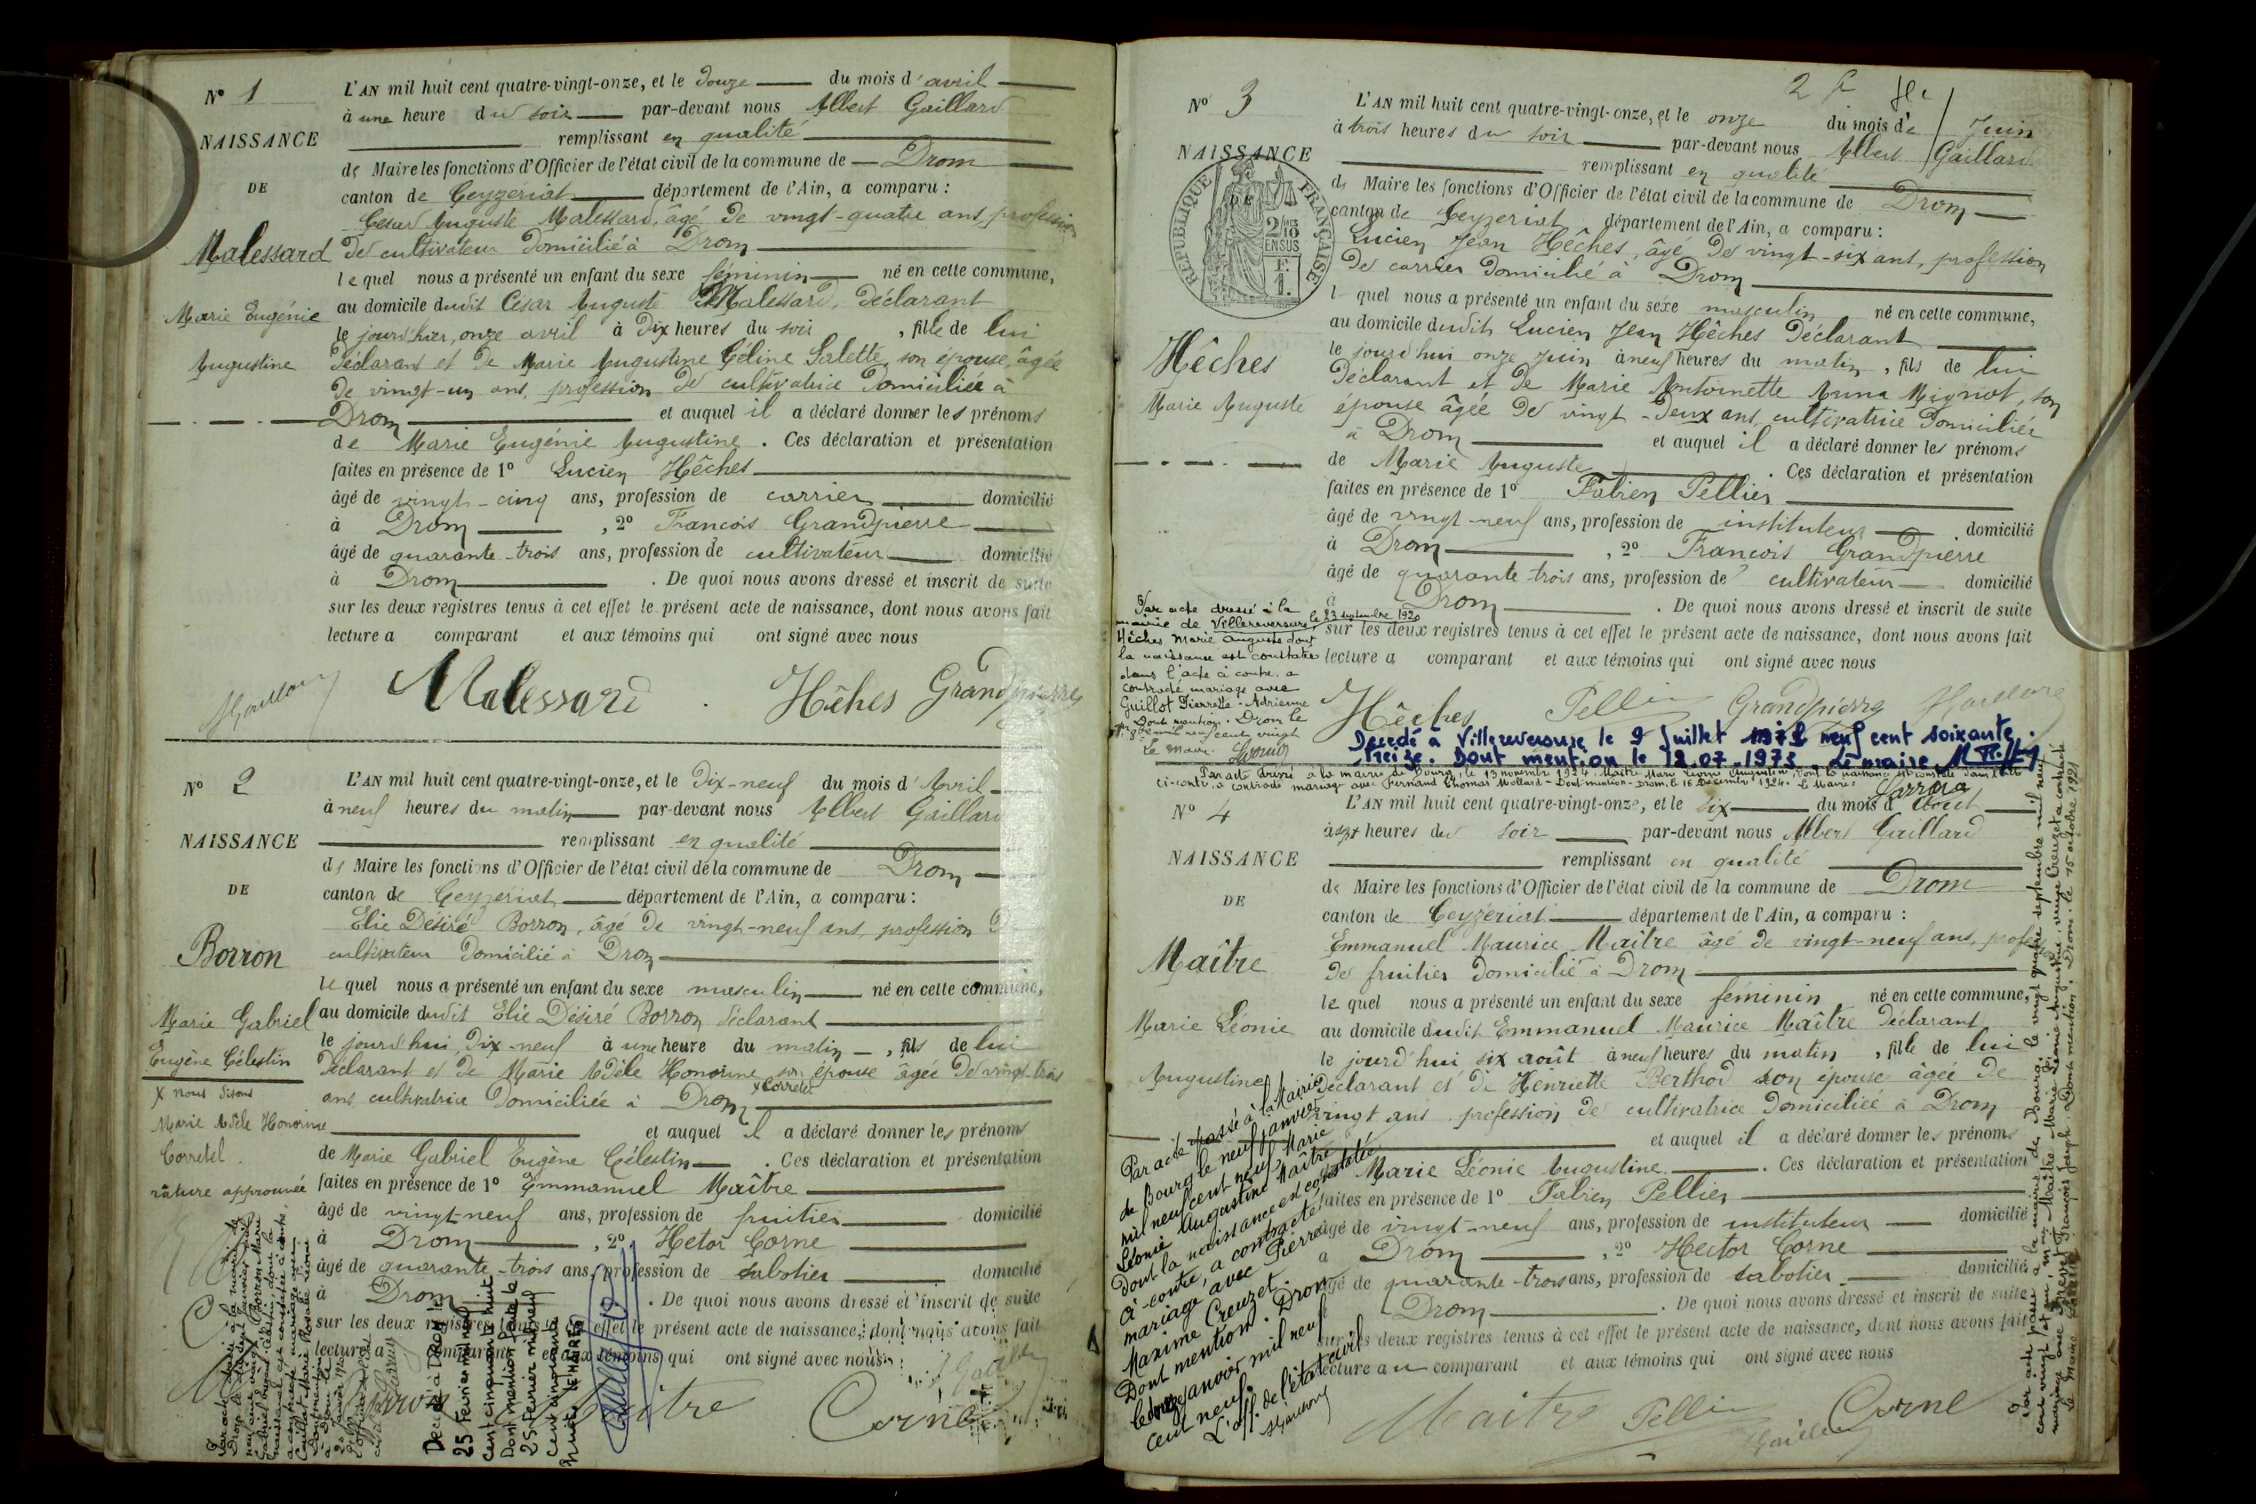 N° 1
NAISSANCE
DE
Malessard
Marie Eugénie
Augustine
L'AN mil huit cent quatre-vingt-onze, et le douze du mois d'avril
à une heure du soir par-devant nous Albert Gaillard
remplissant en qualité
de Maire les fonctions d'Officier de l'état civil de la commune de Drom
canton de Ceyzeriat département de l'Ain, a comparu :
César Auguste Malessard, âgé de vingt-quatre ans, profession
de cultivateur domicilié à Drom
lequel nous a présenté un enfant du sexe féminin né en cette commune,
au domicile dudit César Auguste Malessard, déclarant
le jour d'hier, onze avril à dix heures du soir, fille de lui
déclarant et de Marie Augustine Céline Salette, son épouse, âgée
de vingt-un ans, profession de cultivatrice domiciliée à
Drom et auquel il a déclaré donner les prénoms
de Marie Eugénie Augustine. Ces déclaration et présentation
faites en présence de 1° Lucien Hêches
âgé de vingt-cinq ans, profession de carrier domicilié
à Drom, 2° François Grandpierre
âgé de quarante-trois ans, profession de cultivateur domicilié
à Drom. De quoi nous avons dressé et inscrit de suite
sur les deux registres tenus à cet effet le présent acte de naissance, dont nous avons fait
lecture a comparant et aux témoins qui ont signé avec nous
Malessard Hêches Grandpierre
AGaillard
N° 2
NAISSANCE
DE
Borron
Marie Gabriel
Eugène Célestin
x nous disons
Marie Adèle Honorine
Corretel.
rature approuvée
L'AN mil huit cent quatre-vingt-onze, et le dix-neuf du mois d'Avril
à neuf heures du matin par-devant nous Albert Gaillard
remplissant en qualité
de Maire les fonctions d'Officier de l'état civil de la commune de Drom
canton de Ceyzeriat département de l'Ain, a comparu :
Elie Désiré Borron, âgé de vingt-neuf ans, profession de
cultivateur domicilié à Drom
lequel nous a présenté un enfant du sexe masculin né en cette commune,
au domicile dudit Elie Désiré Borron déclarant
le jourd'hui, dix-neuf à une heure du matin, fils de lui
déclarant et de Marie Adèle Honorine son épouse âgée de vingt-trois
x Corretel
ans, cultivatrice domiciliée à Drom
et auquel il a déclaré donner les prénoms
de Marie Gabriel Eugène Célestin. Ces déclaration et présentation
faites en présence de 1° Emmanuel Maître
âgé de vingt-neuf ans, profession de fruitier domicilié
à Drom, 2° Hetor Corne
âgé de quarante-trois ans, profession de sabotier domicilié
à Drom. De quoi nous avons dressé et inscrit de suite
sur les deux registres tenus à cet effet le présent acte de naissance, dont nous avons fait
lecture a comparant et aux témoins qui ont signé avec nous
Borron Maitre Corne
Décédé à DROM le
25 Fevrier mil neuf
cent cinquante huit
Dont mention faite le
25 Fevrier mil neuf
cent cinquante
huit LE MAIRE
N° 3
NAISSANCE
DE
RÉPUBLIQUE FRANÇAISE
2/10
EN SUS
F.
1.
Hêches
Marie Auguste
L'AN mil huit cent quatre-vingt-onze, et le onze du mois de Juin
à trois heures du soir par-devant nous Albert Gaillard
remplissant en qualité
de Maire les fonctions d'Officier de l'état civil de la commune de Drom
canton de Ceyzeriat département de l'Ain, a comparu :
Lucien Jean Hêches, âgé de vingt-six ans, profession
de carrier domicilié à Drom
lequel nous a présenté un enfant du sexe masculin né en cette commune,
au domicile dudit Lucien Jean Hêches déclarant
le jourd'hui onze Juin à neuf heures du matin, fils de lui
déclarant et de Marie Antoinette Anna Mignot, son
épouse âgée de vingt-deux ans, cultivatrice domiciliée
à Drom et auquel il a déclaré donner les prénoms
de Marie Auguste. Ces déclaration et présentation
faites en présence de 1° Fabien Pellier
âgé de vingt-neuf ans, profession de instituteur domicilié
à Drom, 2° François Grandpierre
âgé de quarante-trois ans, profession de cultivateur domicilié
à Drom. De quoi nous avons dressé et inscrit de suite
sur les deux registres tenus à cet effet le présent acte de naissance, dont nous avons fait
lecture a comparant et aux témoins qui ont signé avec nous
Hêches Pellier Grandpierre
Par acte dressé à la
mairie de Villereversure le 23 septembre 1920
Hêches Marie Auguste dont
la naissance est constatée
dans l'acte ci contre a
contracté mariage avec
Guillot Pierrette Adrienne
Dont mention. Drom le
mil neuf cent vingt
Le Maire
Décédé à Villereversure le 9 Juillet neuf cent soixante
treize. Dont mention le 12.07.1973. Le maire
Par acte dressé à la mairie de Bourg, le 13 novembre 1924, Maître Marie Léonie Augustine, dont la naissance est constatée dans l'acte
ci-contre, a contracté mariage avec Fernand Thomas Mollard - Dont mention - Drom, le 16 Décembre 1924. Le Maire
N° 4
NAISSANCE
DE
Maître
Marie Léonie
Augustine
L'AN mil huit cent quatre-vingt-onze, et le six du mois d'Août
à sept heures du soir par-devant nous Albert Gaillard
remplissant en qualité
de Maire les fonctions d'Officier de l'état civil de la commune de Drom
canton de Ceyzériat département de l'Ain, a comparu :
Emmanuel Maurice Maître âgé de vingt-neuf ans, profession
de fruitier domicilié à Drom
lequel nous a présenté un enfant du sexe féminin né en cette commune,
au domicile dudit Emmanuel Maurice Maître déclarant
le jourd'hui six août à neuf heures du matin, fille de lui
déclarant et de Henriette Berthod son épouse âgée de
vingt ans profession de cultivatrice domiciliée à Drom
et auquel il a déclaré donner les prénoms
Marie Léonie Augustine. Ces déclaration et présentation
faites en présence de 1° Fabien Pellier
âgé de vingt-neuf ans, profession de instituteur domicilié
à Drom, 2° Hector Corne
âgé de quarante-trois ans, profession de sabotier domicilié
Drom. De quoi nous avons dressé et inscrit de suite
sur les deux registres tenus à cet effet le présent acte de naissance, dont nous avons fait
lecture au comparant et aux témoins qui ont signé avec nous
Maitre Pellier Corne
Par acte passé à la Mairie
de Bourg le neuf janvier
mil neuf cent neuf, Marie
Léonie Augustine Maître
dont la naissance est constatée
ci-contre, a contracté
mariage avec Pierre
Maxime Creuzet.
Dont mention. Drom
le onze janvier mil neuf
cent neuf.
L'off. de l'état civil
Par acte passé à la mairie de Bourg, le vingt quatre septembre mil neuf
cent vingt et un, Maître Marie Léonie Augustine, veuve Creuzet a contracté
mariage avec François Joseph. Dont mention. Drom le 15 octobre 1921
Le Maire